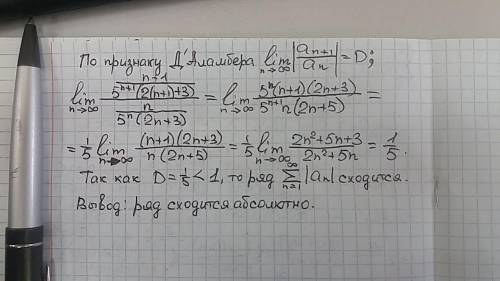 По признаку Д'Аламбера lim n→∞ |aₙ₊₁/aₙ| = D;
lim n→∞ ((n+1)/(5ⁿ⁺¹(2(n+1)+3)))/(n/(5ⁿ(2n+3))) = lim n→∞ (5ⁿ(n+1)(2n+3))/(5ⁿ⁺¹n(2n+5)) =
= 1/5 lim n→∞ ((n+1)(2n+3))/(n(2n+5)) = 1/5 lim n→∞ (2n²+5n+3)/(2n²+5n) = 1/5.
Так как D = 1/5 < 1, то ряд ∞∑n=1 |aₙ| сходится.
Вывод: ряд сходится абсолютно.